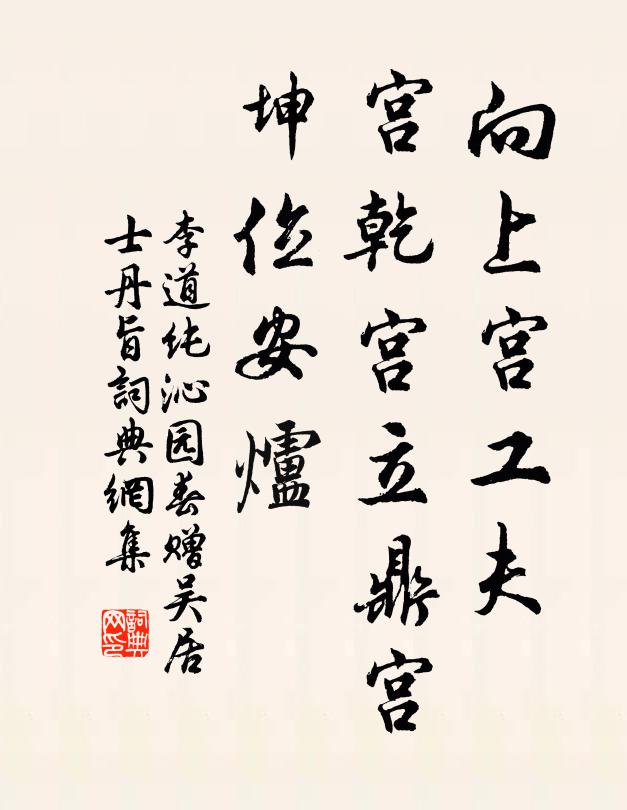 向上宫工夫
宫乾宫立鼎宫
坤位安爐
李道纯沁园春赠吴居
士丹旨詞典網集
詞典
网印